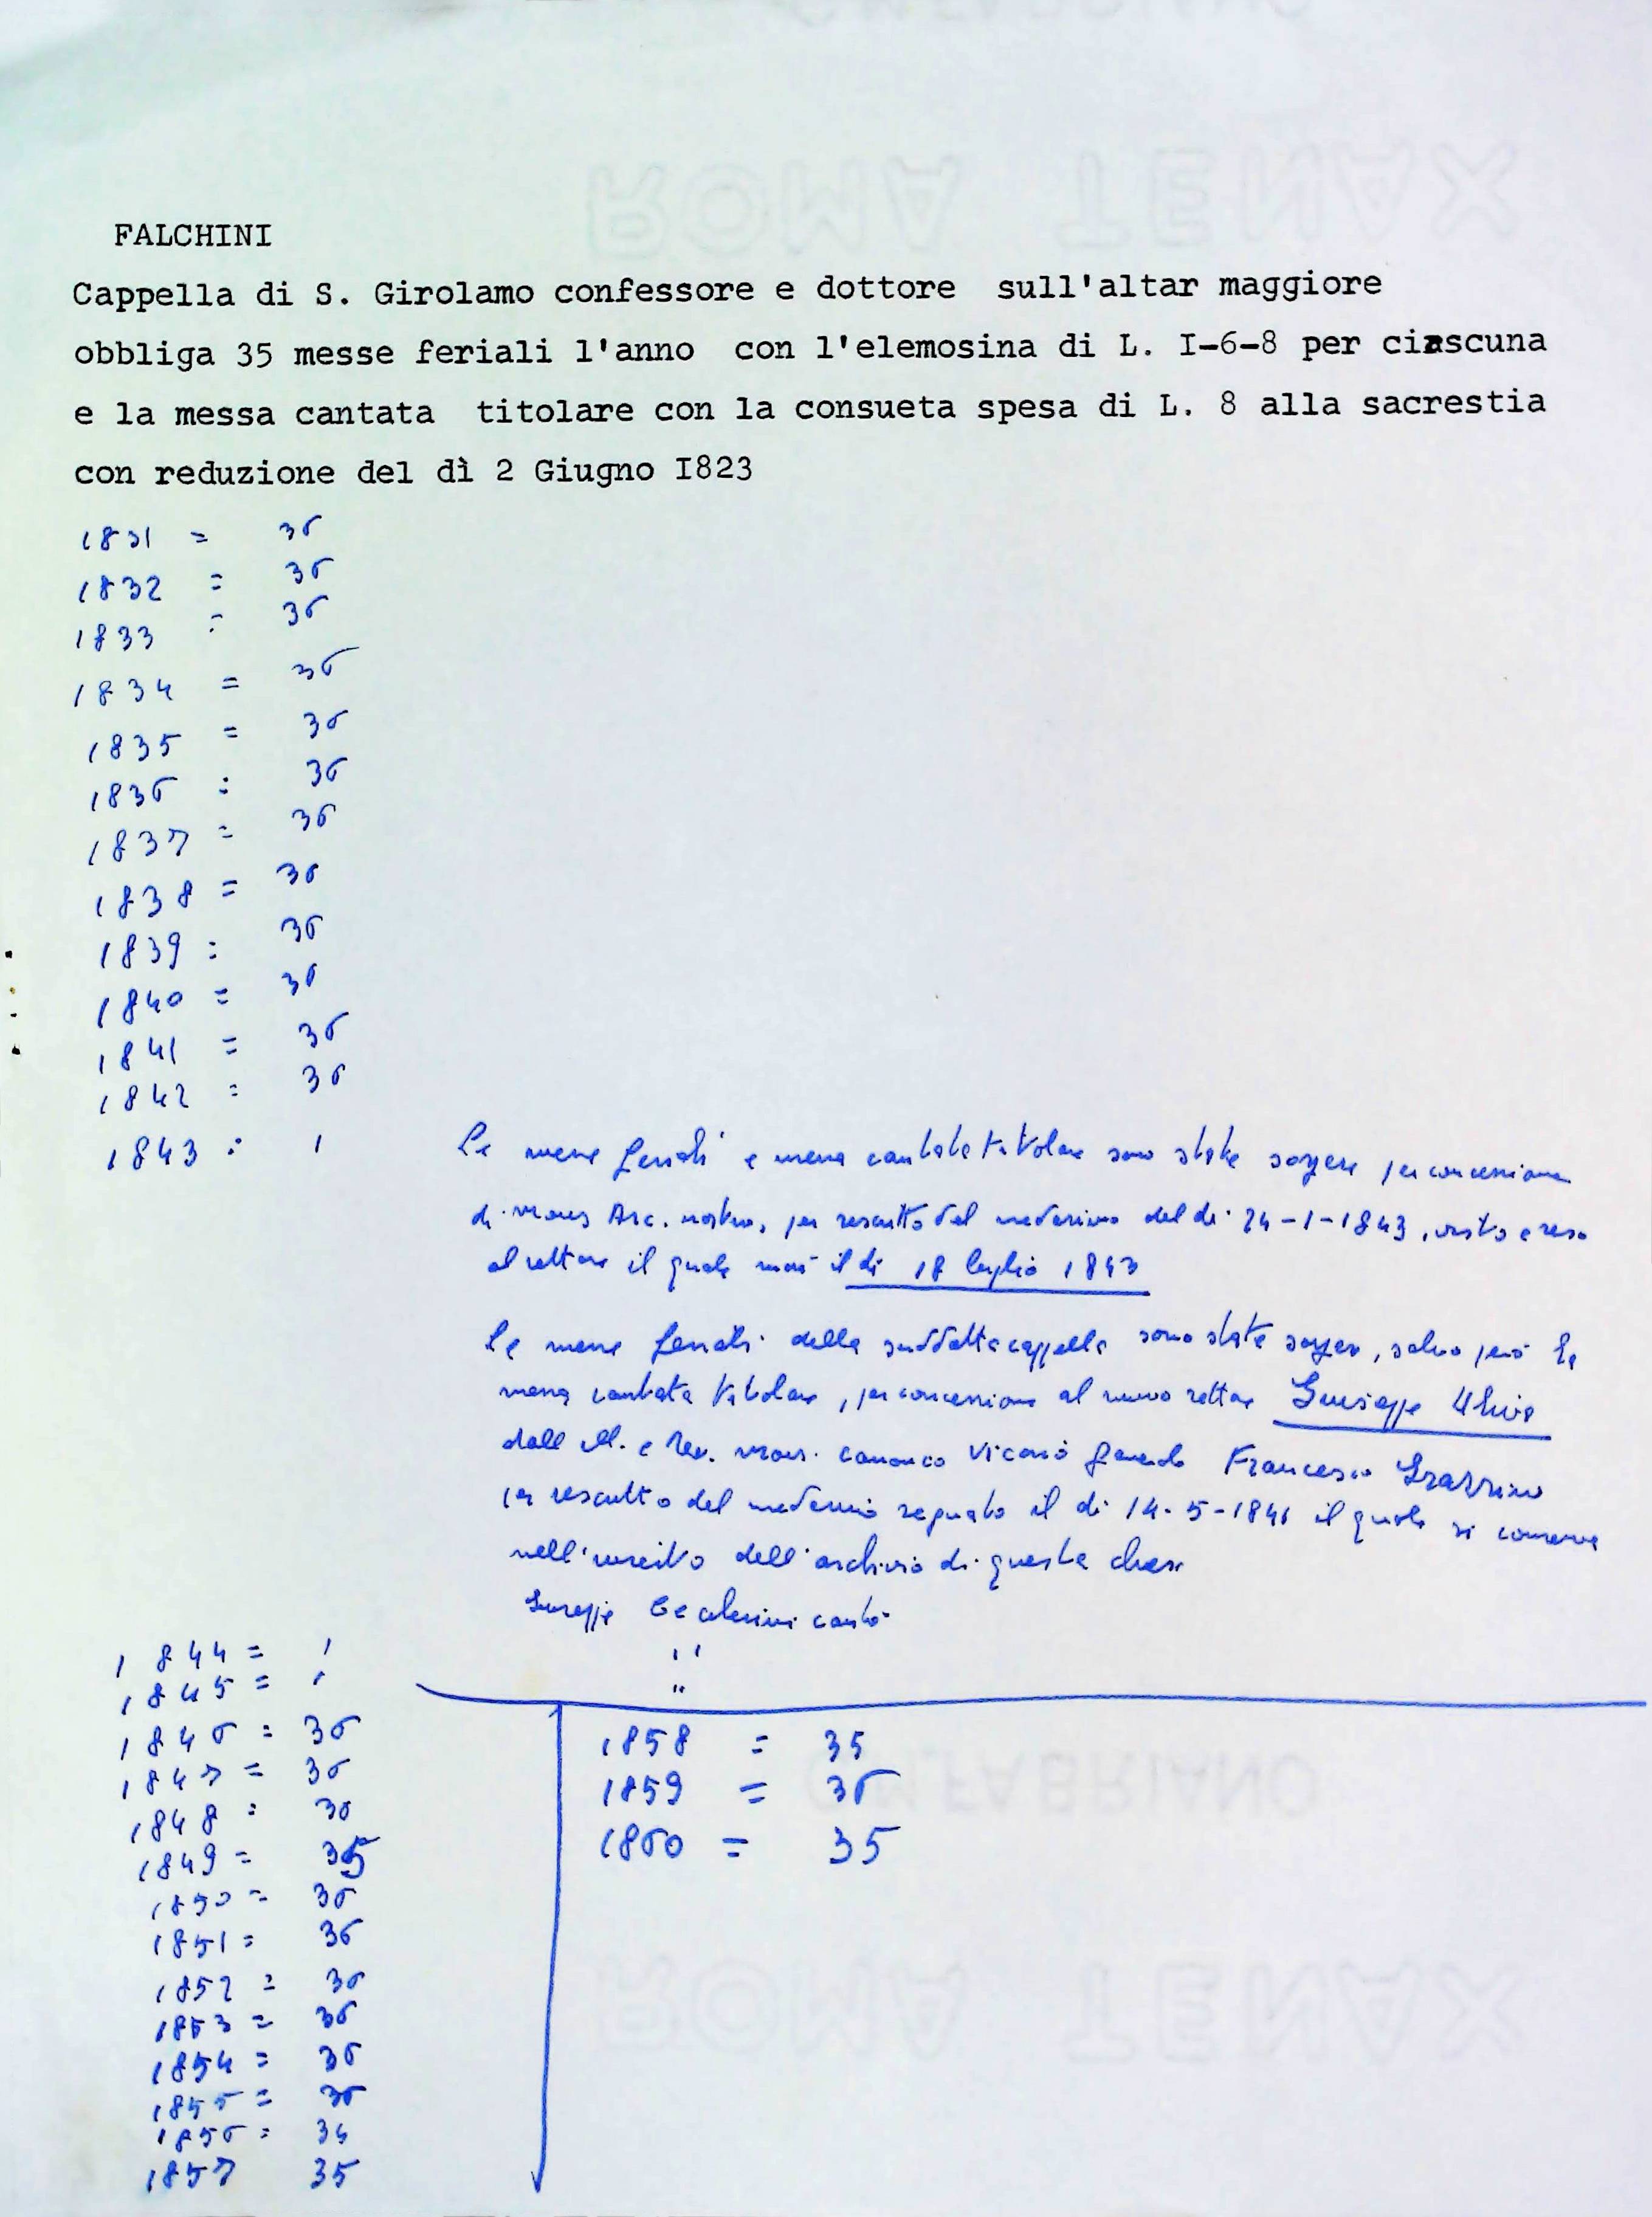 FALCHINI
Cappella di S. Girolamo confessore e dottore sull'altar maggiore
obbliga 35 messe feriali l'anno con l'elemosina di L. I-6-8 per ciascuna
e la messa cantata titolare con la consueta spesa di L. 8 alla sacrestia
con reduzione del dì 2 Giugno I823
1831 = 36
1832 = 36
1833 = 36
1834 = 36
1835 = 36
1836 = 36
1837 = 36
1838 = 36
1839 = 36
1840 = 36
1841 = 36
1842 = 36
1843 = 1
Le messe feriali e messa cantata titolare sono state sospese per concessione
di mons Arc. nostro, per rescritto del medesimo del di 24-1-1843, visto e reso
al rettore il quale morì il di 18 luglio 1843
Le messe feriali della suddetta cappella sono state sospese, salvo però la
messa cantata titolare, per concessione al nuovo rettore Giuseppe
dall M. e Rev. mons. canonico Vicario generale Francesco Grazzini
per rescritto del medesimo segnato il di 14-5-184 il quale si conserva
nell' dell'archivio di questa chiesa
Giuseppe
1844 = 1 "
1845 = 1 "
1846 = 36
1847 = 36
1848 = 36
1849 = 35
1850 = 36
1851 = 36
1852 = 36
1853 = 36
1854 = 36
1855 = 36
1856 = 34
1857 35
1858 = 35
1859 = 36
1860 = 35
ROMA TENAX
CM.FABRIANO
ROMA TENAX